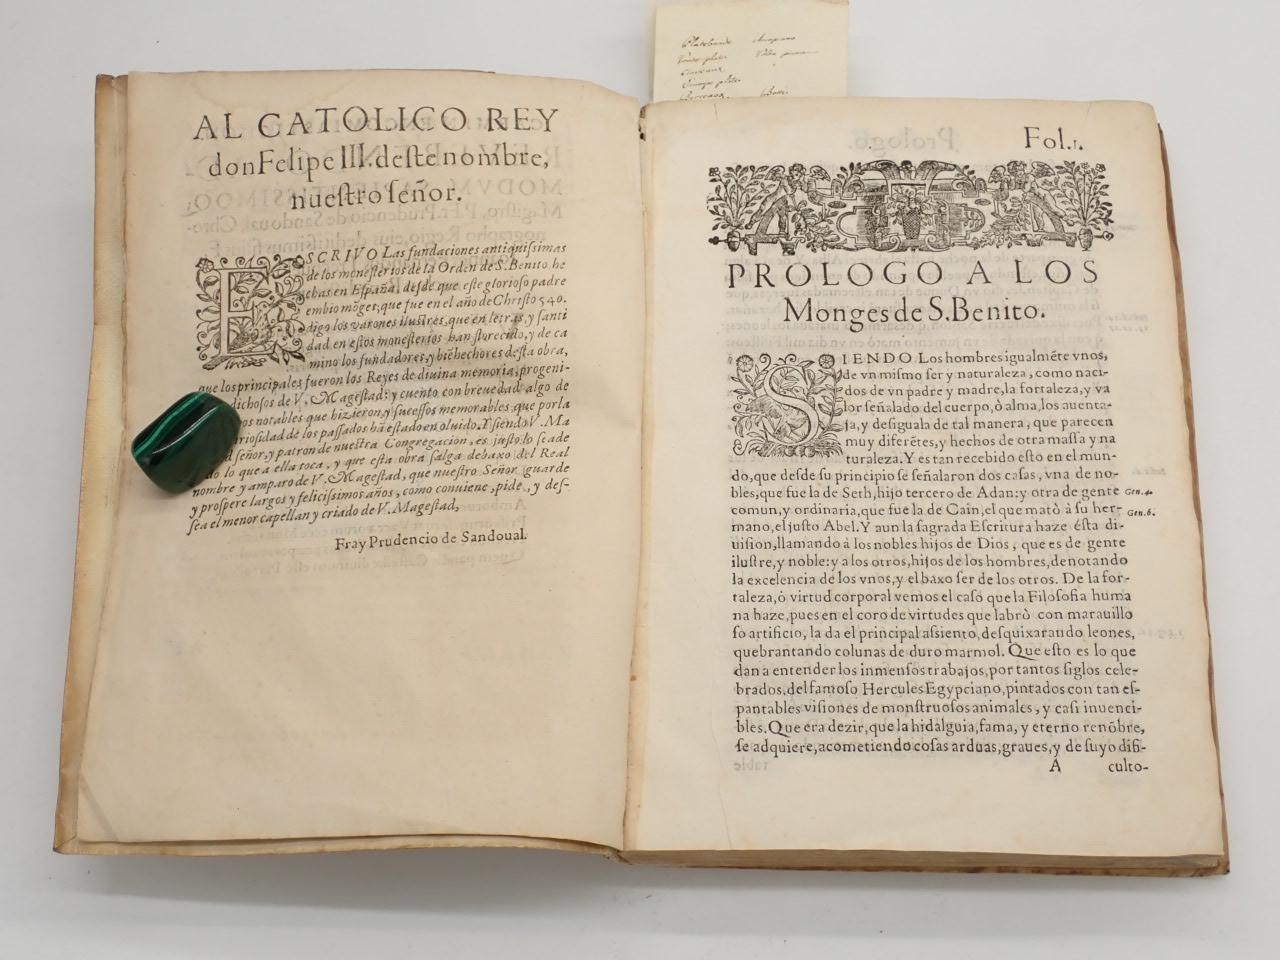 AL CATOLICO REY
don Felipe III. deste nombre,
nuestro señor.
ESCRIVO Las fundaciones antiquissimas
de los monesterios de la Orden de S. Benito, he
chas en España, desde que este glorioso padre
embio mõges, que fue en el año de Christo 540.
digo los varones ilustres, que en letras, y santi
dad en estos monesterios han florecido, y de ca
mino los fundadores, y biẽhechores desta obra,
que los principales fueron los Reyes de diuina memoria, progeni-
dichosos de V. Magestad: y cuento con breuedad algo de
os notables que hizieron, y sucessos memorables, que por la
riosidad de los passados hã estado en oluido. Y siendo V. Ma
d señor, y patron de nuestra Congregacion, es justo lo sea de
do lo que a ella toca, y que esta obra salga debaxo del Real
nombre y amparo de V. Magestad, que nuestro Señor guarde
y prospere largos y felicissimos años, como conuiene, pide, y des-
sea el menor capellan y criado de V. Magestad,
Fray Prudencio de Sandoual.
Fol. 1.
PROLOGO A LOS
Monges de S. Benito.
SIENDO Los hombres igualmẽte vnos,
de vn mismo ser y naturaleza, como naci-
dos de vn padre y madre, la fortaleza, y va
lor señalado del cuerpo, ò alma, los auenta-
ja, y desiguala de tal manera, que parecen
muy diferẽtes, y hechos de otra massa y na
turaleza. Y es tan recebido esto en el mun-
do, que desde su principio se señalaron dos casas, vna de no-
bles, que fue la de Seth, hijo tercero de Adan: y otra de gente
Gen. 4.
comun, y ordinaria, que fue la de Cain, el que matò à su her-
Gen. 6.
mano, el justo Abel. Y aun la sagrada Escritura haze ésta di-
uision, llamando à los nobles hijos de Dios, que es de gente
ilustre, y noble: y a los otros, hijos de los hombres, denotando
la excelencia de los vnos, y el baxo ser de los otros. De la for-
taleza, ò virtud corporal vemos el caso que la Filosofia huma
na haze, pues en el coro de virtudes que labrò con marauillo
so artificio, la da el principal assiento, desquixarando leones,
quebrantando colunas de duro marmol. Que esto es lo que
dan a entender los inmensos trabajos, por tantos siglos cele-
brados, del famoso Hercules Egypciano, pintados con tan es-
pantables visiones de monstruosos animales, y casi inuenci-
bles. Que era dezir, que la hidalguia, fama, y eterno renõbre,
se adquiere, acometiendo cosas arduas, graues, y de suyo difi-
A culto-